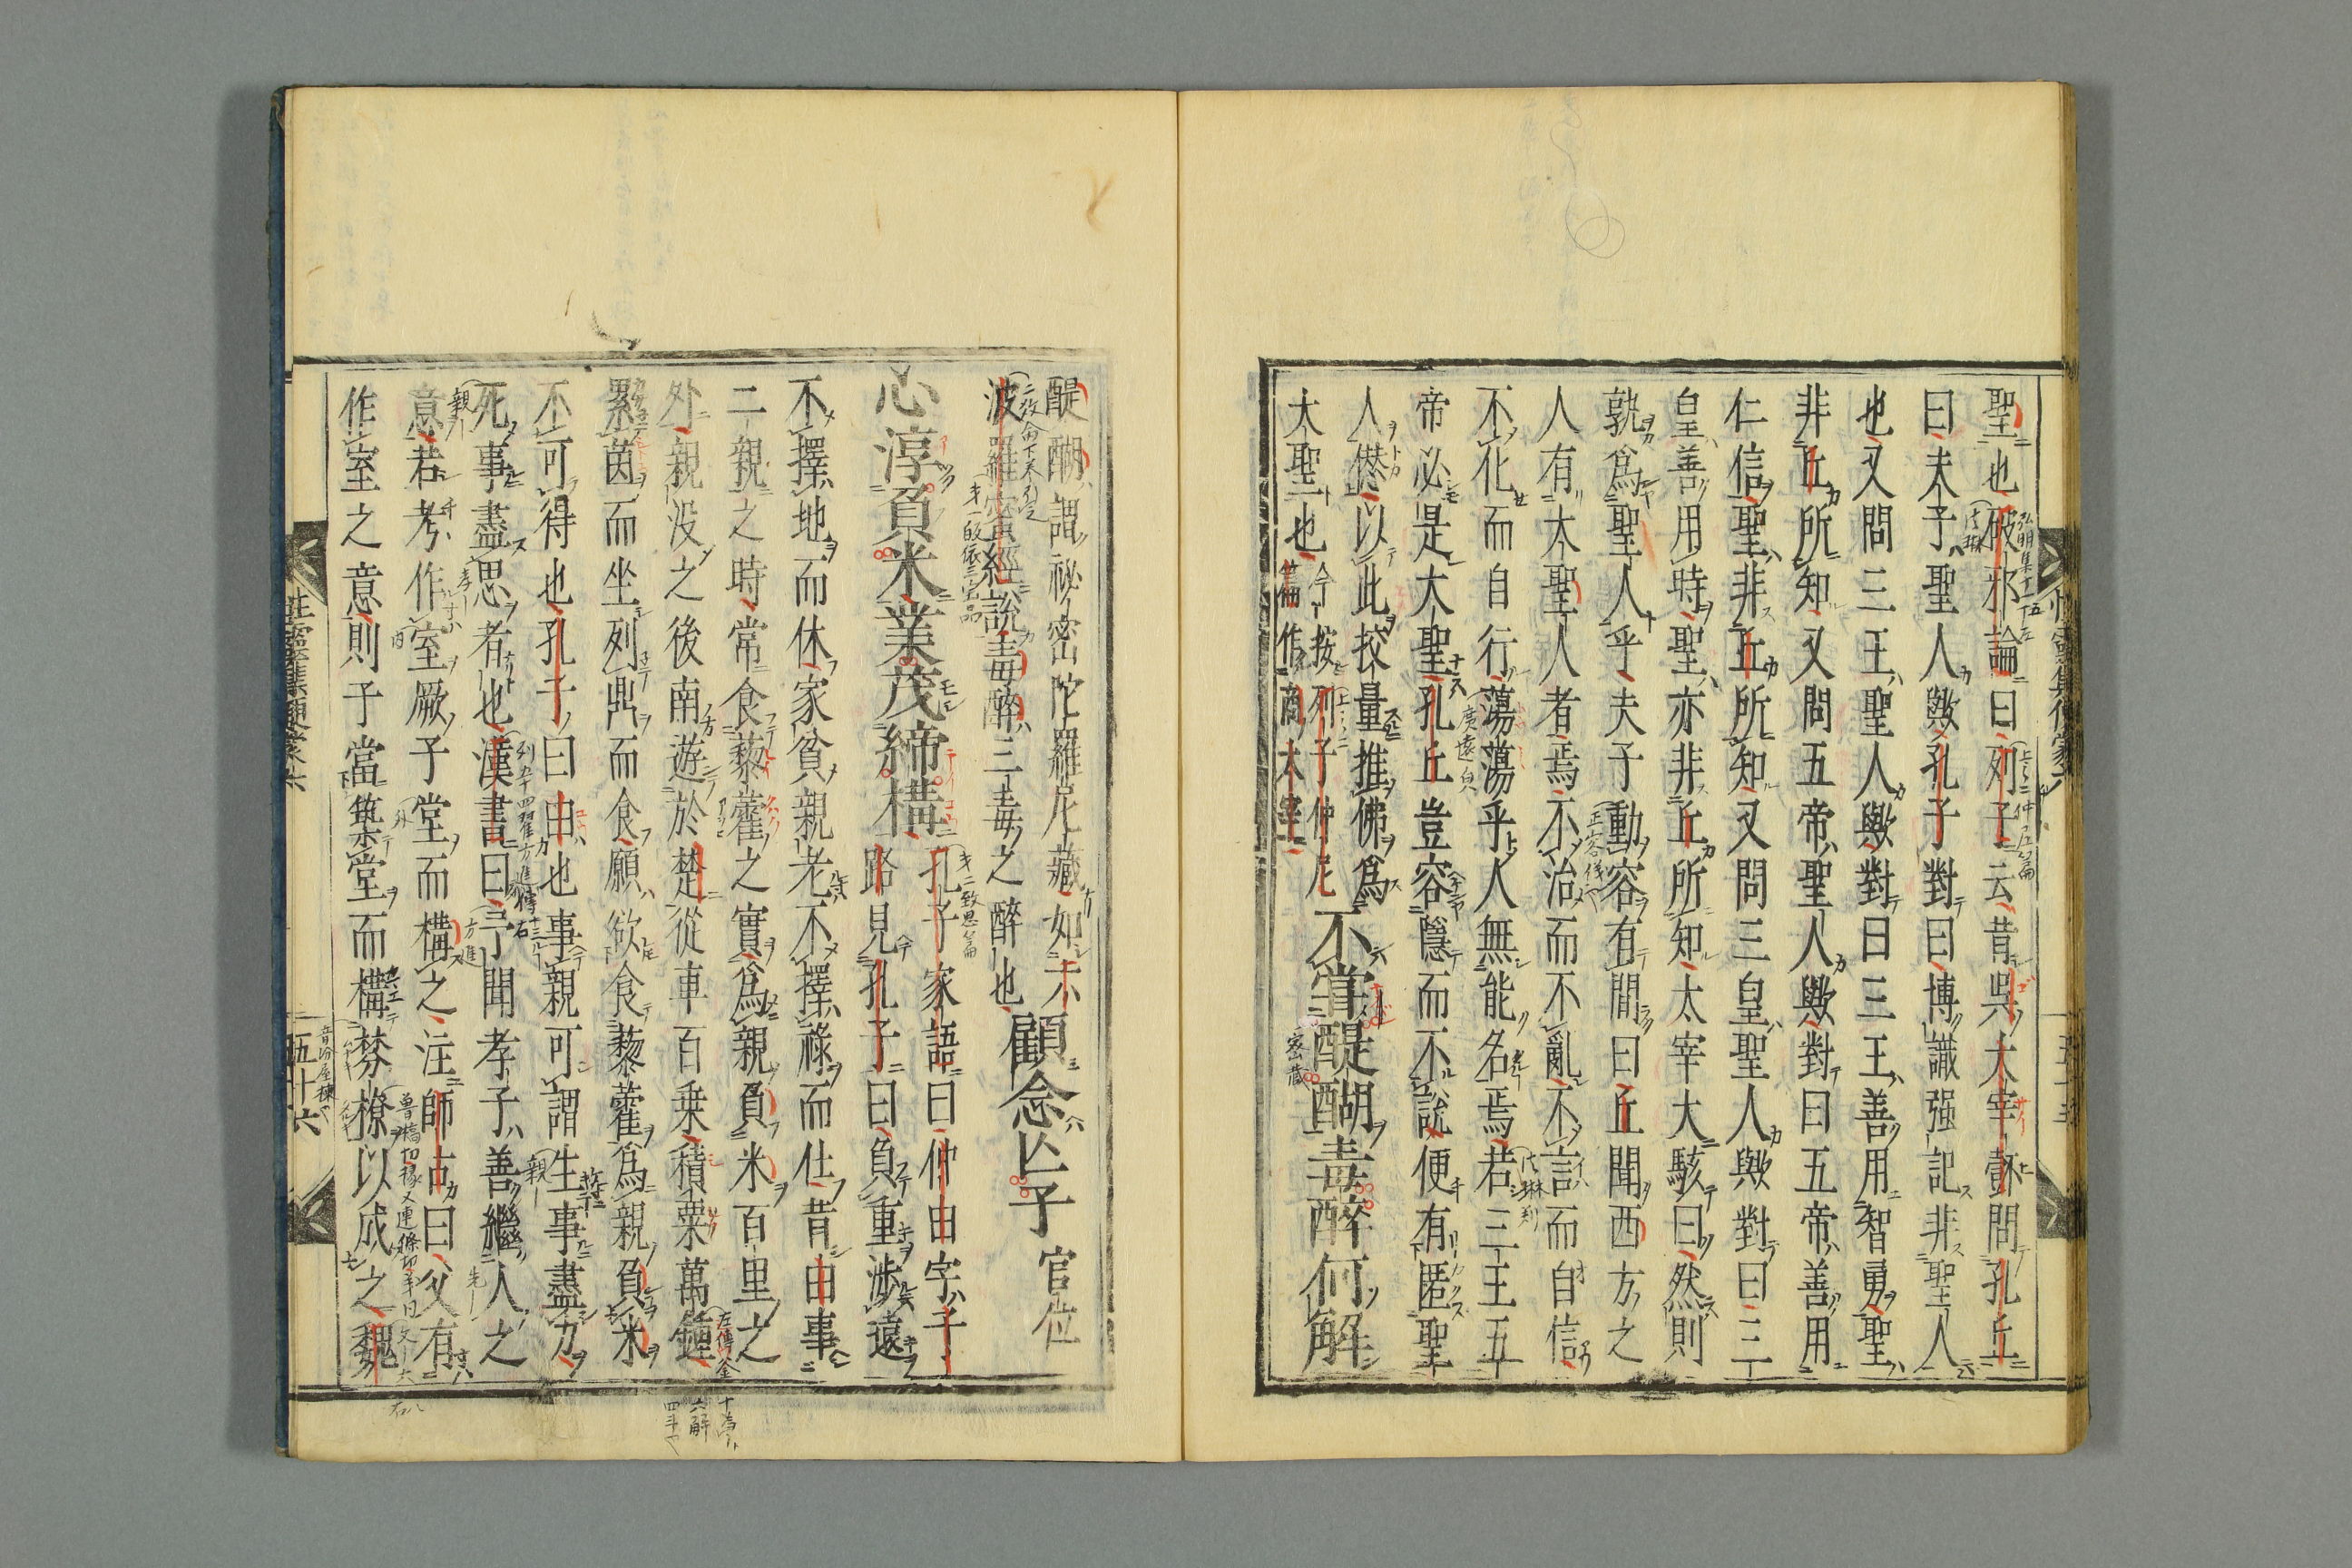 聖也破邪論曰列子云昔吳大宰嚭問孔丘
曰夫子聖人歟孔子對曰博識强記非聖人
也又問三王聖人歟對曰三王善用智勇聖
非丘所知又問五帝聖人歟對曰五帝善用
仁信聖非丘所知又問三皇聖人歟對曰三
皇善用時聖亦非丘所知太宰大駭曰然則
孰爲聖人乎夫子動容有間曰丘聞西方之
人有太聖人者焉不治而不亂不言而自信
不化而自行蕩蕩乎人無能名焉若三王五
帝必是大聖孔丘豈容隱而不說便有匿聖
人𠍴以此挍量推佛爲
太聖也
今按列子仲尼
篇作商太宰
不嘗醍醐毒醉何解
醍醐謂祕密陀羅尼藏如六
波羅蜜經說毒醉三毒之醉也
顧念亡子
官位
心淳負米業茂締構
孔子家語曰仲由字子
路見孔子曰負重涉遠
不擇地而休家貧親老不擇祿而仕昔由事
二親之時常食藜藿之實爲親負米百里之
外親沒之後南遊於楚從車百乘積粟萬鍾
累茵而坐列鼎而食願欲食藜藿爲親負米
不可得也孔子曰由也事親可謂生事盡力
死事盡思者也漢書曰予聞孝子善繼人之
意若考作室厥子堂而構之注師古曰父有
作室之意則子當築堂而構棼橑以成之魏
五十六